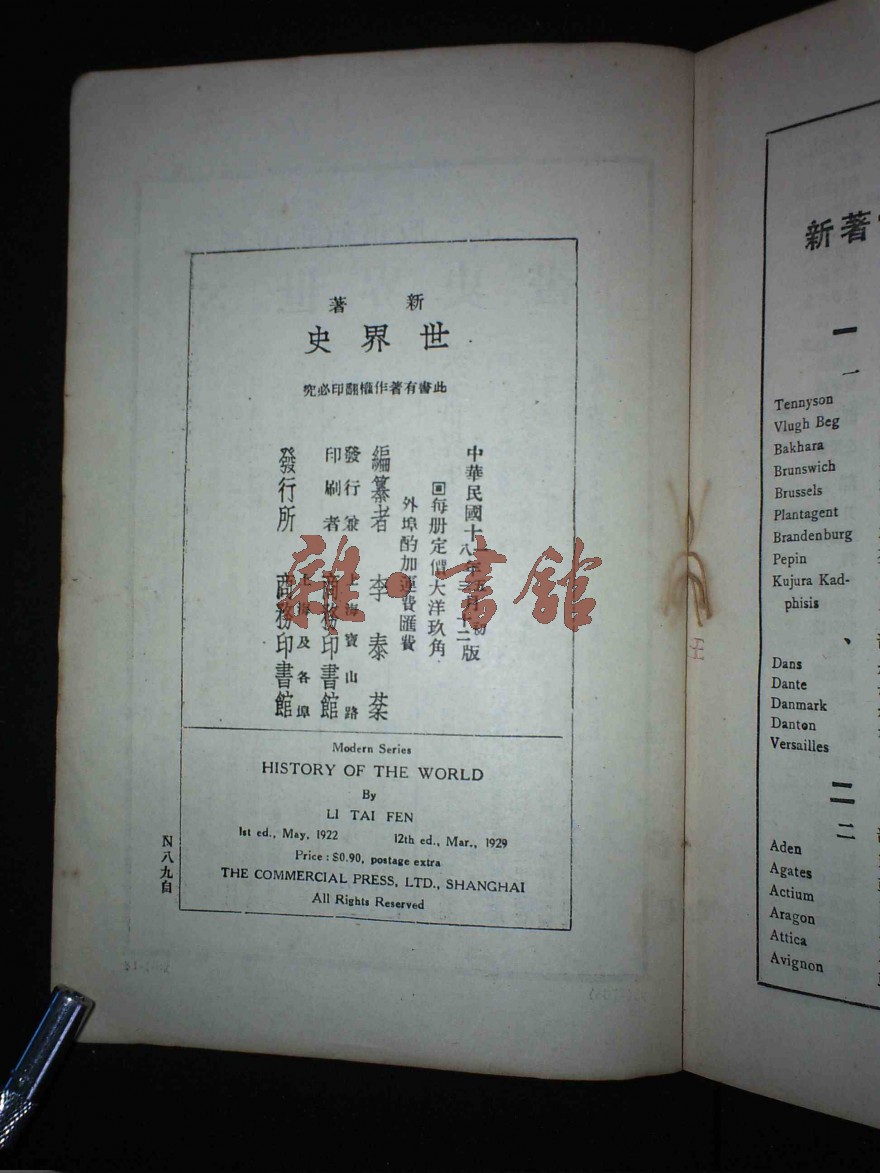 新著
世界史
此書有著作權翻印必究
中華民國十一年五月初版
八年三月十二
回每册定價大洋玖角
外埠酌加運費匯費
編纂者 李泰棻
發行兼 上海寶山路
印刷者 商務印書館
發行所 商務印書館
上海及各埠
Modern Series
HISTORY OF THE WORLD
By
LI TAI FEN
1st ed., May, 1922 12th ed., Mar., 1929
Price : $0.90, postage extra
THE COMMERCIAL PRESS, LTD., SHANGHAI
All Rights Reserved
N八九自
雜·書館
新著
一
一
Tennyson
Vlugh Beg
Bakhara
Brunswich
Brussels
Plantagent
Brandenburg
Pepin
Kujura Kad-
phisis
Dans
Dante
Danmark
Danton
Versailles
二
二
Aden
Agates
Actium
Aragon
Attica
Avignon